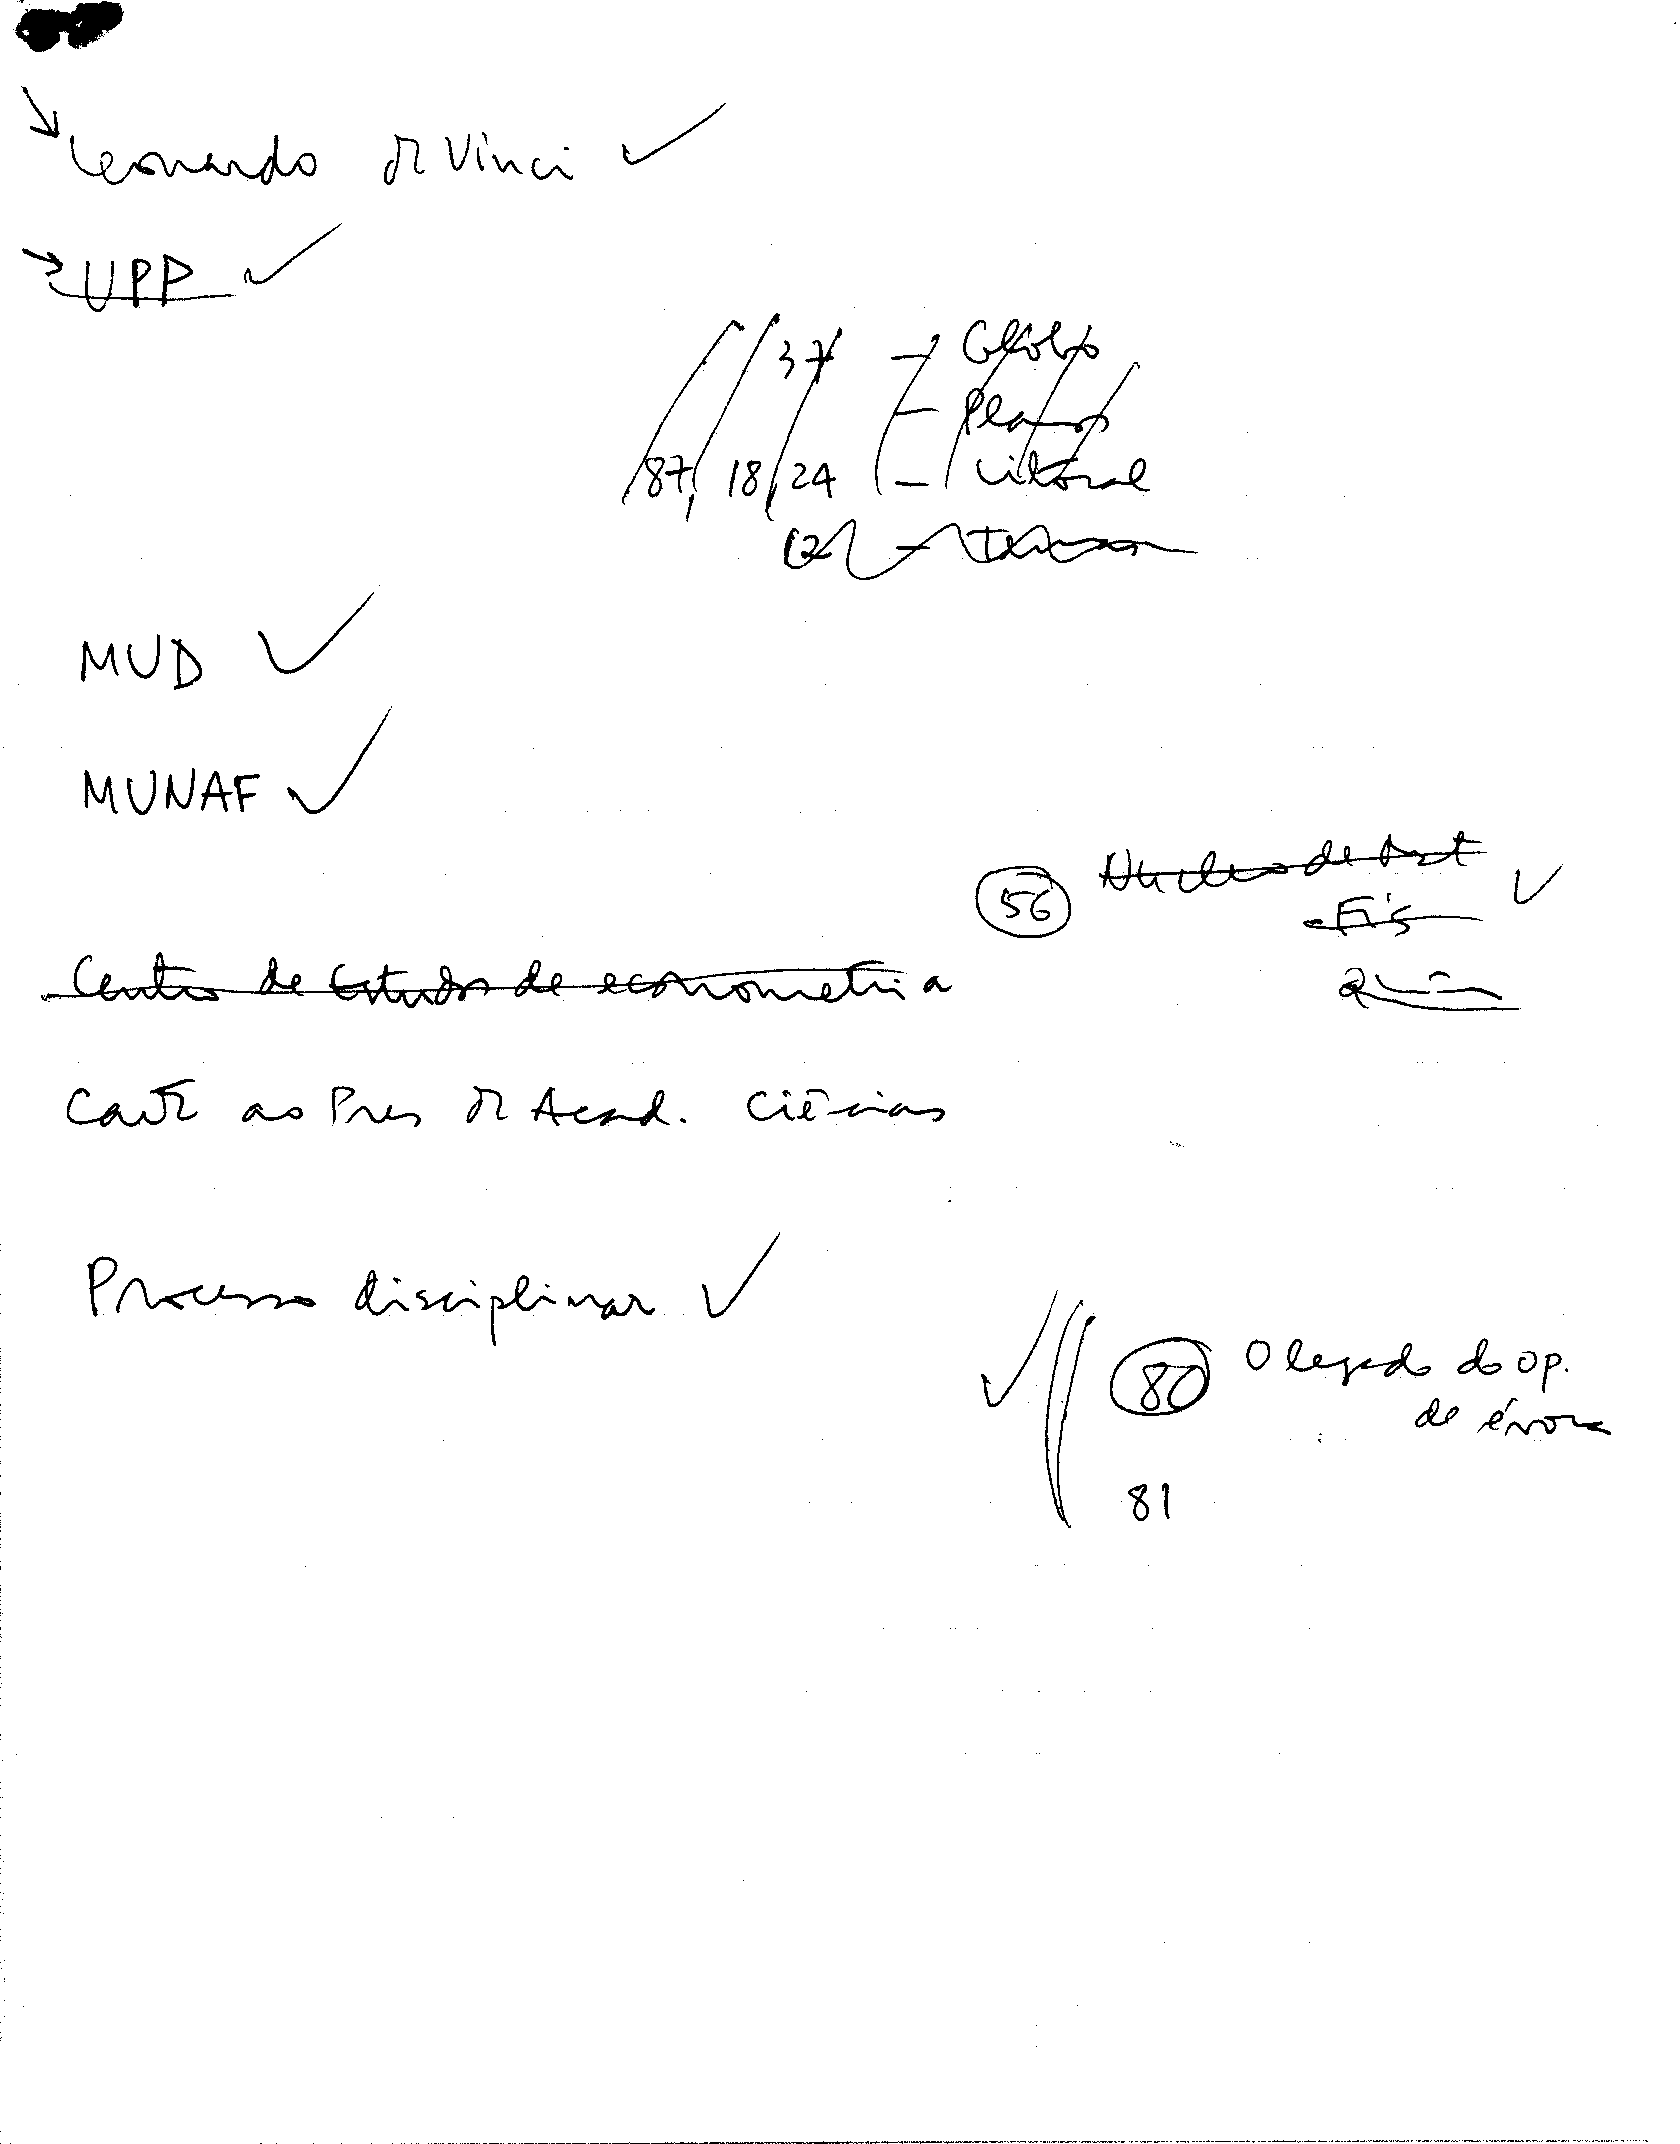 Leonardo da Vinci
UPP
37 -
-
87, 18, 24 - Litoral
12 -
MUD
MUNAF
56 Núcleo de Mat
- Fís
Quím
Centro de Estudos de econometria
Carta ao Pres da Acad. Ciências
Processo disciplinar
80 O legado do op.
de évora
81